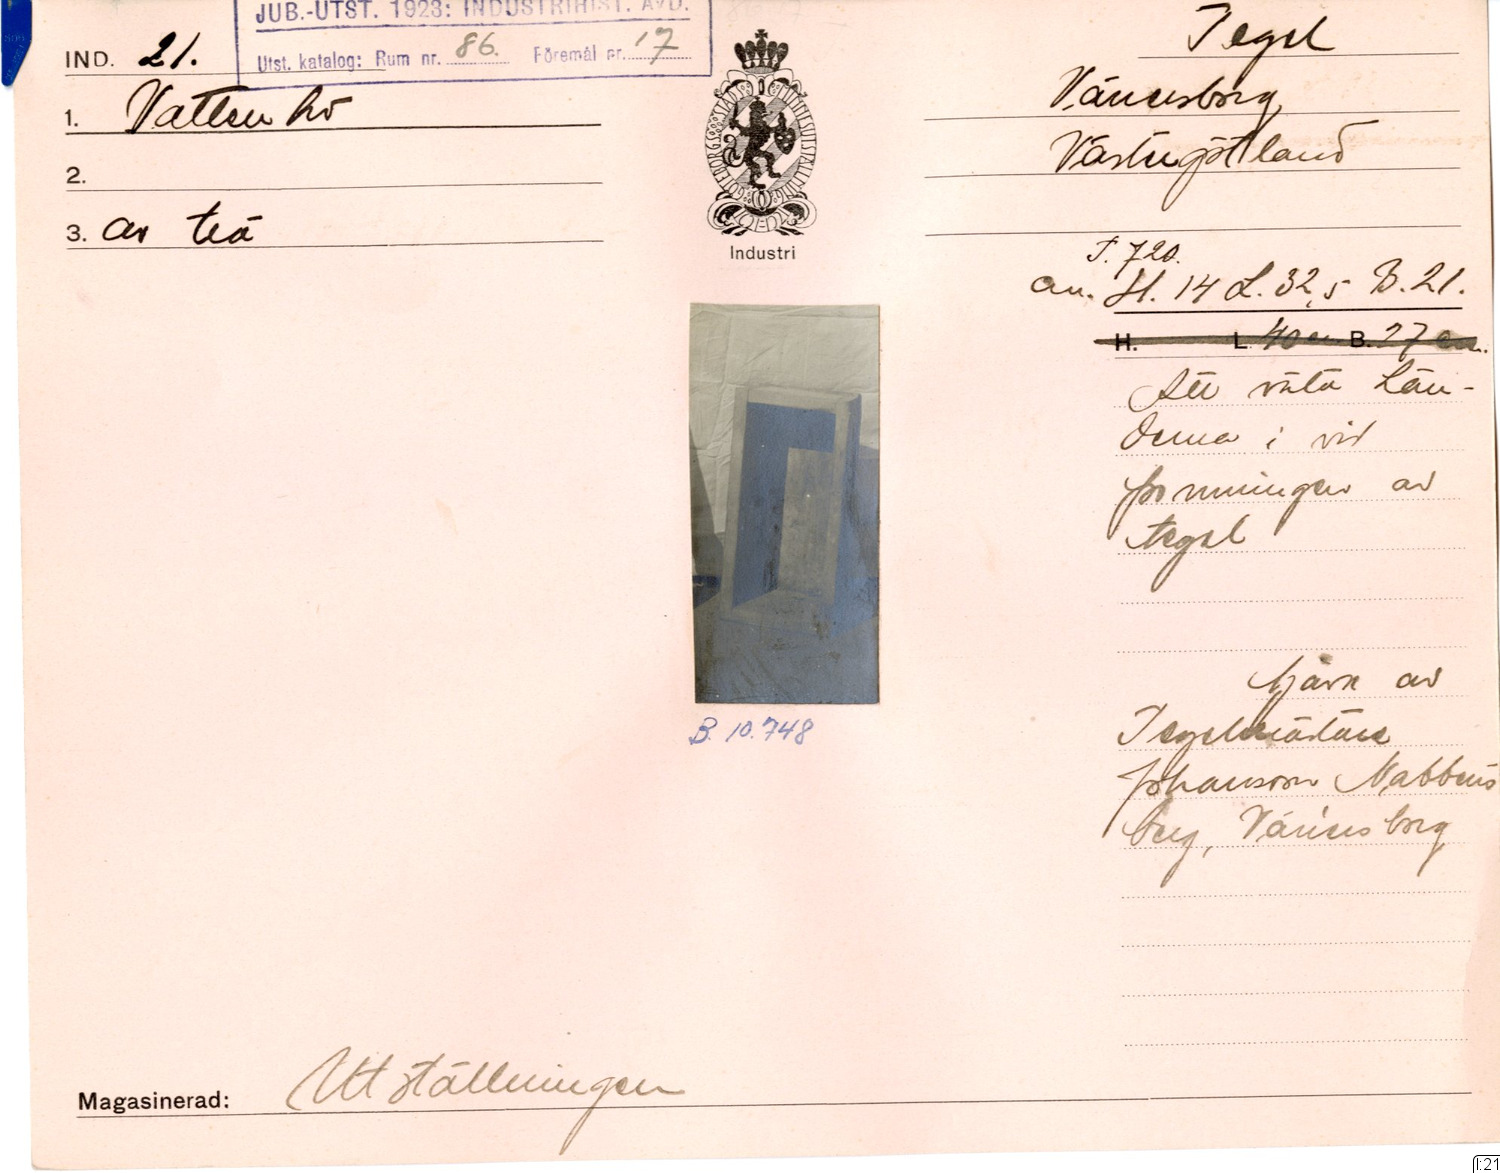 JUB.-UTST. 1923: INDUSTRIHIST. AVD.
Utst. katalog: Rum nr. 86. Föremål nr. 17
IND. 21.
1. Vattenho
2.
3. av trä
GÖTEBORGS STADS MINNESUTSTÄLLNING
Industri
B. 10.748
Tegel
Vänersborg
Västergötland
T. 720.
H. 14 L. 32,5 B. 21.
H. L. 40 cm B. 27 cm.
Att väta hän-
derna i vid
formningen av
tegel
av
Tegelmästare
Johansson Mabbens
berg, Vänersborg
Magasinerad: Utställningen
I:21